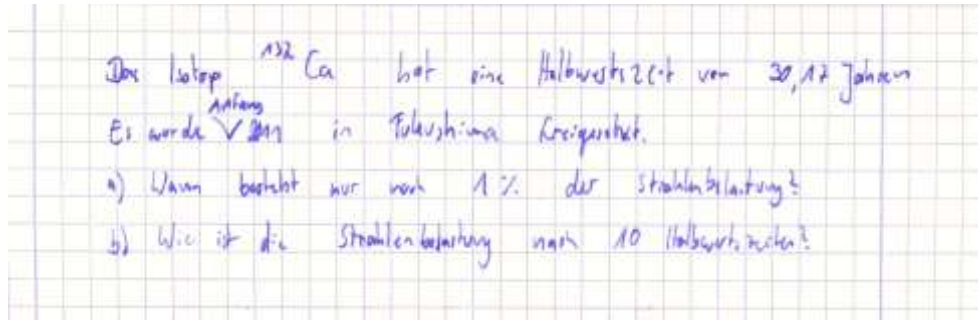 Das Isotop ¹³⁷Ca hat eine Halbwertszeit von 30,17 Jahren
Es wurde Anfang 2011 in Fukushima freigesetzt.
a) Wann besteht nur noch 1% der Strahlenbelastung?
b) Wie ist die Strahlenbelastung nach 10 Halbwertszeiten?